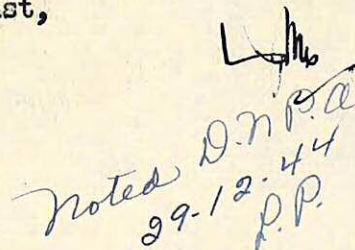 st,
Noted D.N.P.A
29-12-44
P.P.